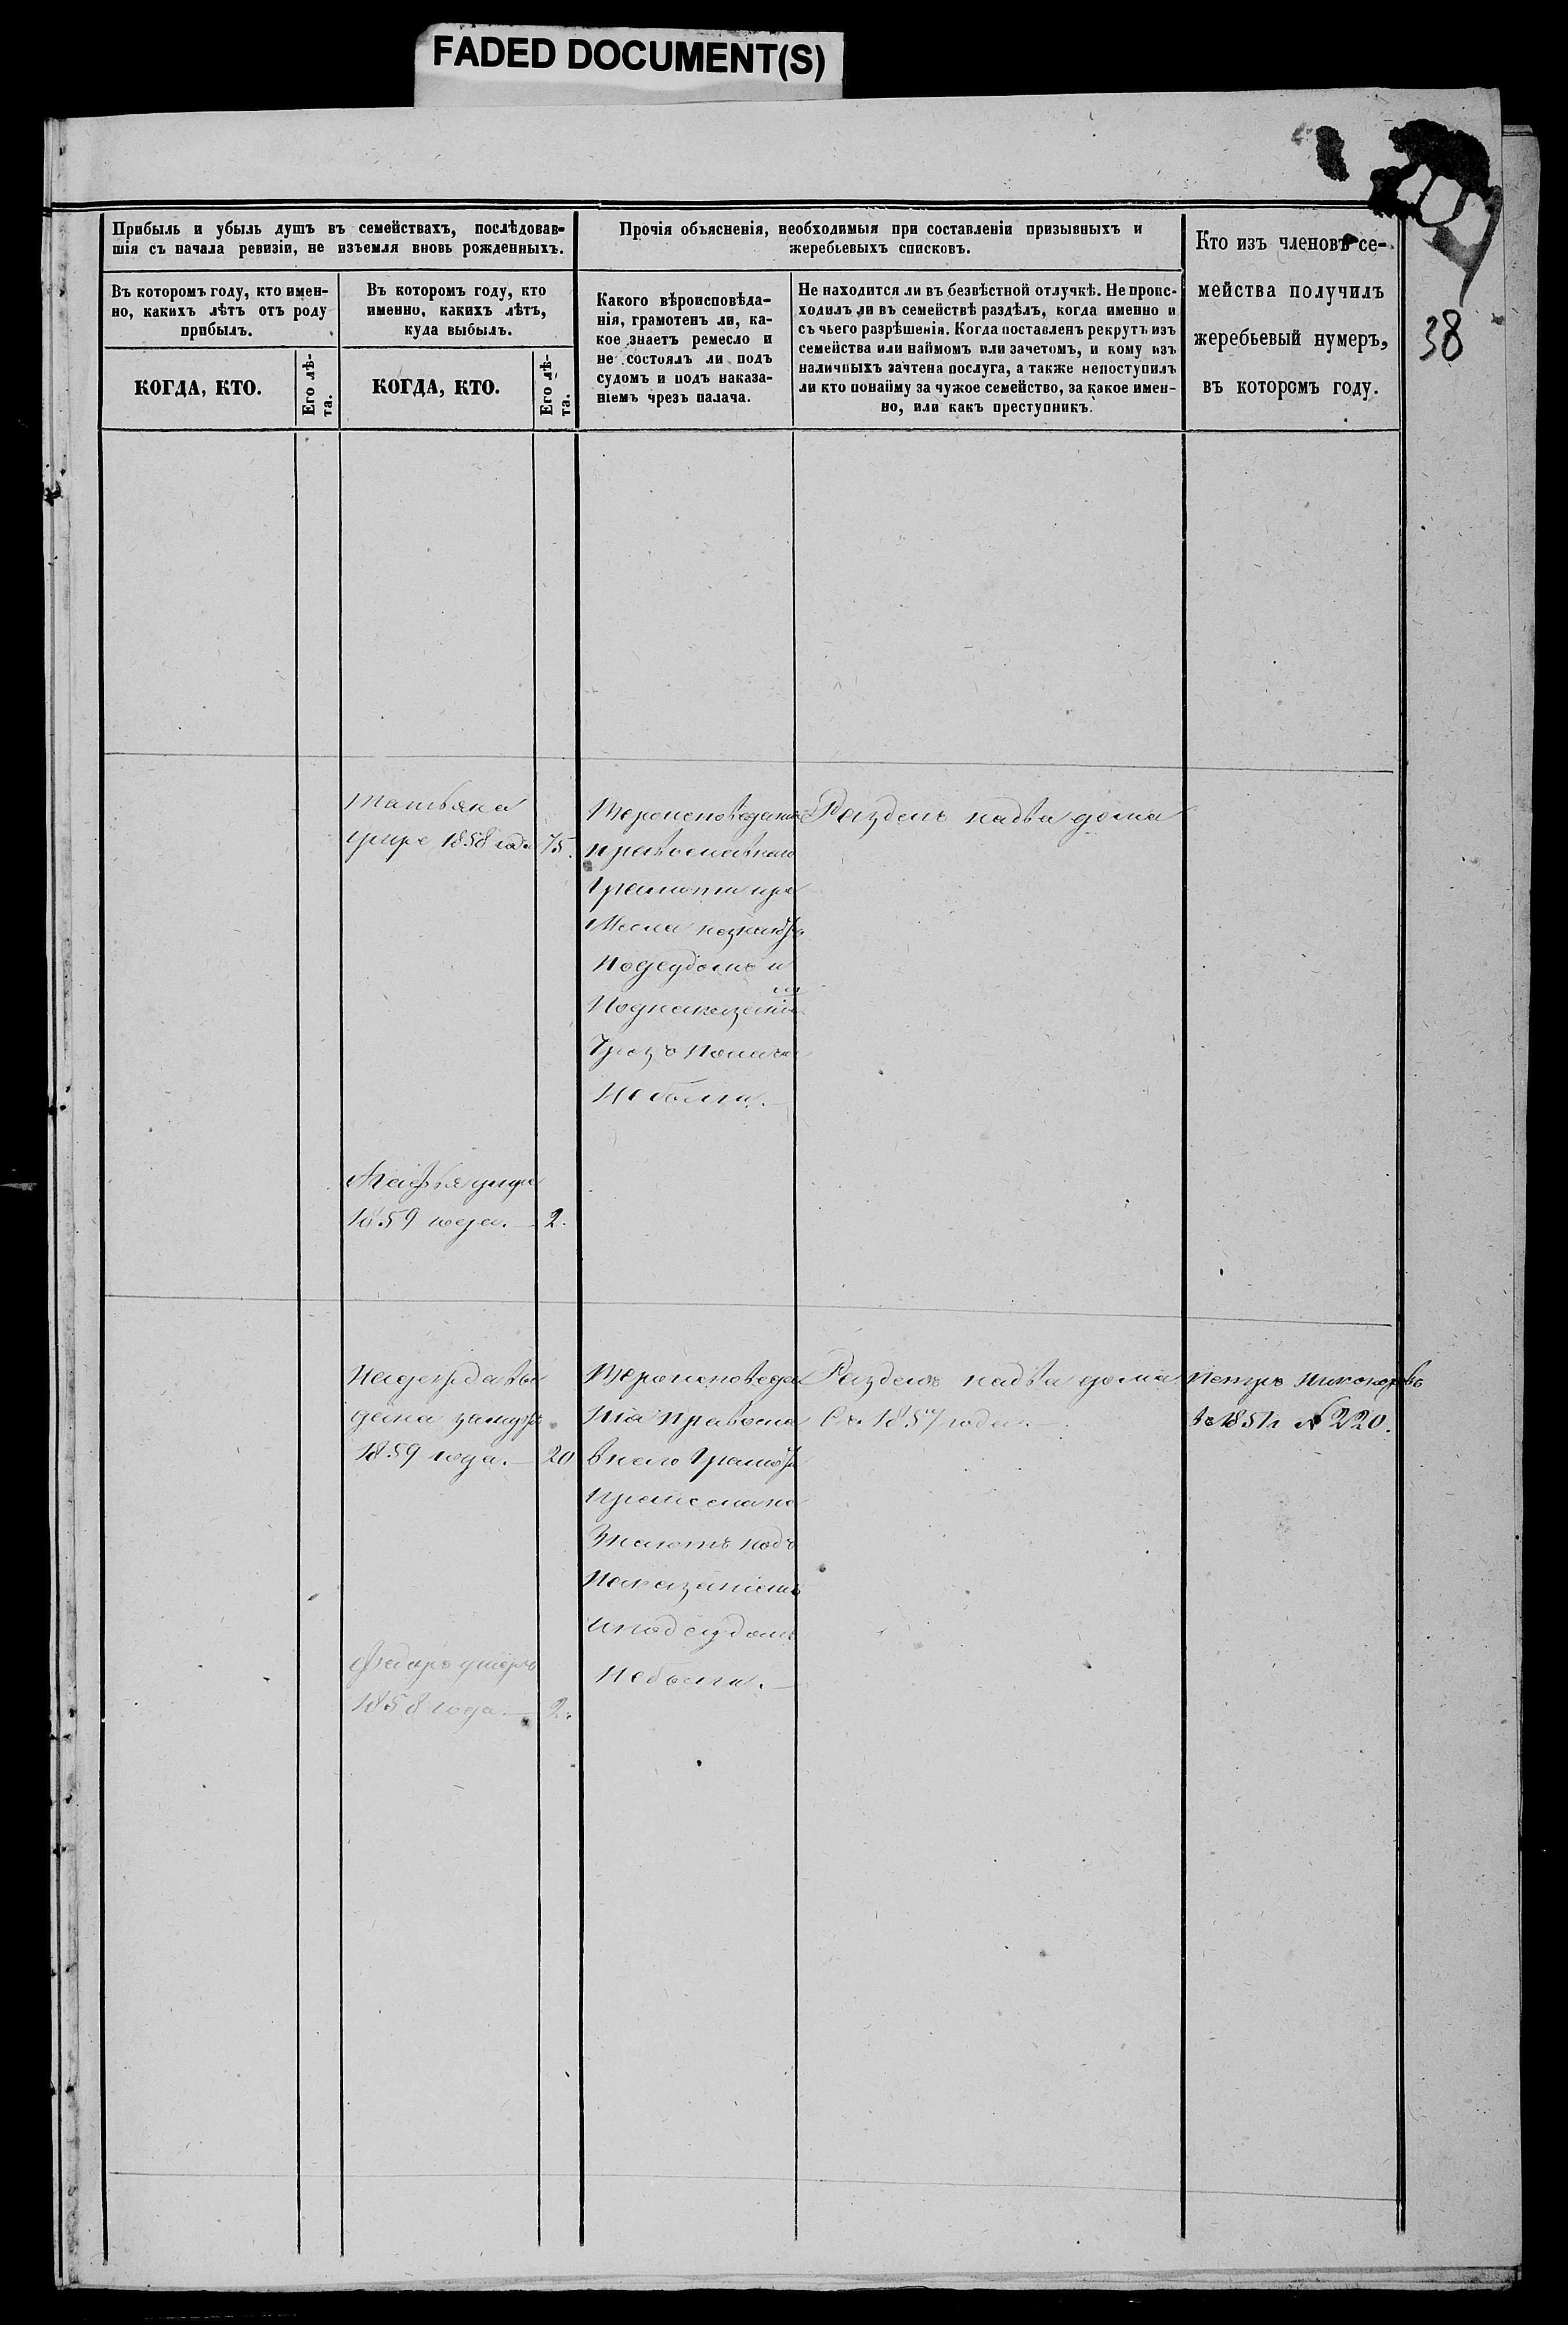 FADED DOCUMENT(S)
38
Прибыль и убыль душъ въ семействахъ, послѣдовав-
шія съ начала ревизіи, не изъемля вновь рожденныхъ.
Прочія объясненія, необходимыя при составленіи призывныхъ и
жеребьевыхъ списковъ.
Кто изъ членовъ се-
мейства получилъ
жеребьевый нумеръ,
въ которомъ году.
Въ которомъ году, кто имен-
но, какихъ лѣтъ отъ роду
прибылъ.
Въ которомъ году, кто
именно, какихъ лѣтъ,
куда выбылъ.
Какого вѣроисповѣда-
нія, грамотенъ ли, ка-
кое знаетъ ремесло и
не состоялъ ли подъ
судомъ и подъ наказа-
ніемъ чрезъ палача.
Не находится ли въ безвѣстной отлучкѣ. Не проис-
ходилъ ли въ семействѣ раздѣлъ, когда именно и
съ чьего разрѣшенія. Когда поставленъ рекрутъ изъ
семейства или наймомъ или зачетомъ, и кому изъ
наличныхъ зачтена послуга, а также непоступилъ
ли кто понайму за чужое семейство, за какое имен-
но, или какъ преступникъ.
КОГДА, КТО.
Его лѣ-
та.
КОГДА, КТО.
Его лѣ-
та.
Татьяна
1858 года 75.
православнаго
Подсудомъ и
Небыли.
Раздель надва дома
1859 года. 2.
дена замужъ
1859 года. 20
Знаютъ подъ
Наказаніемъ
иподсудомъ
Небыли.
Раздель надва дома
Съ 1857 года.
Петръ
№ 220.
Федоръ умеръ
1858 года 2.